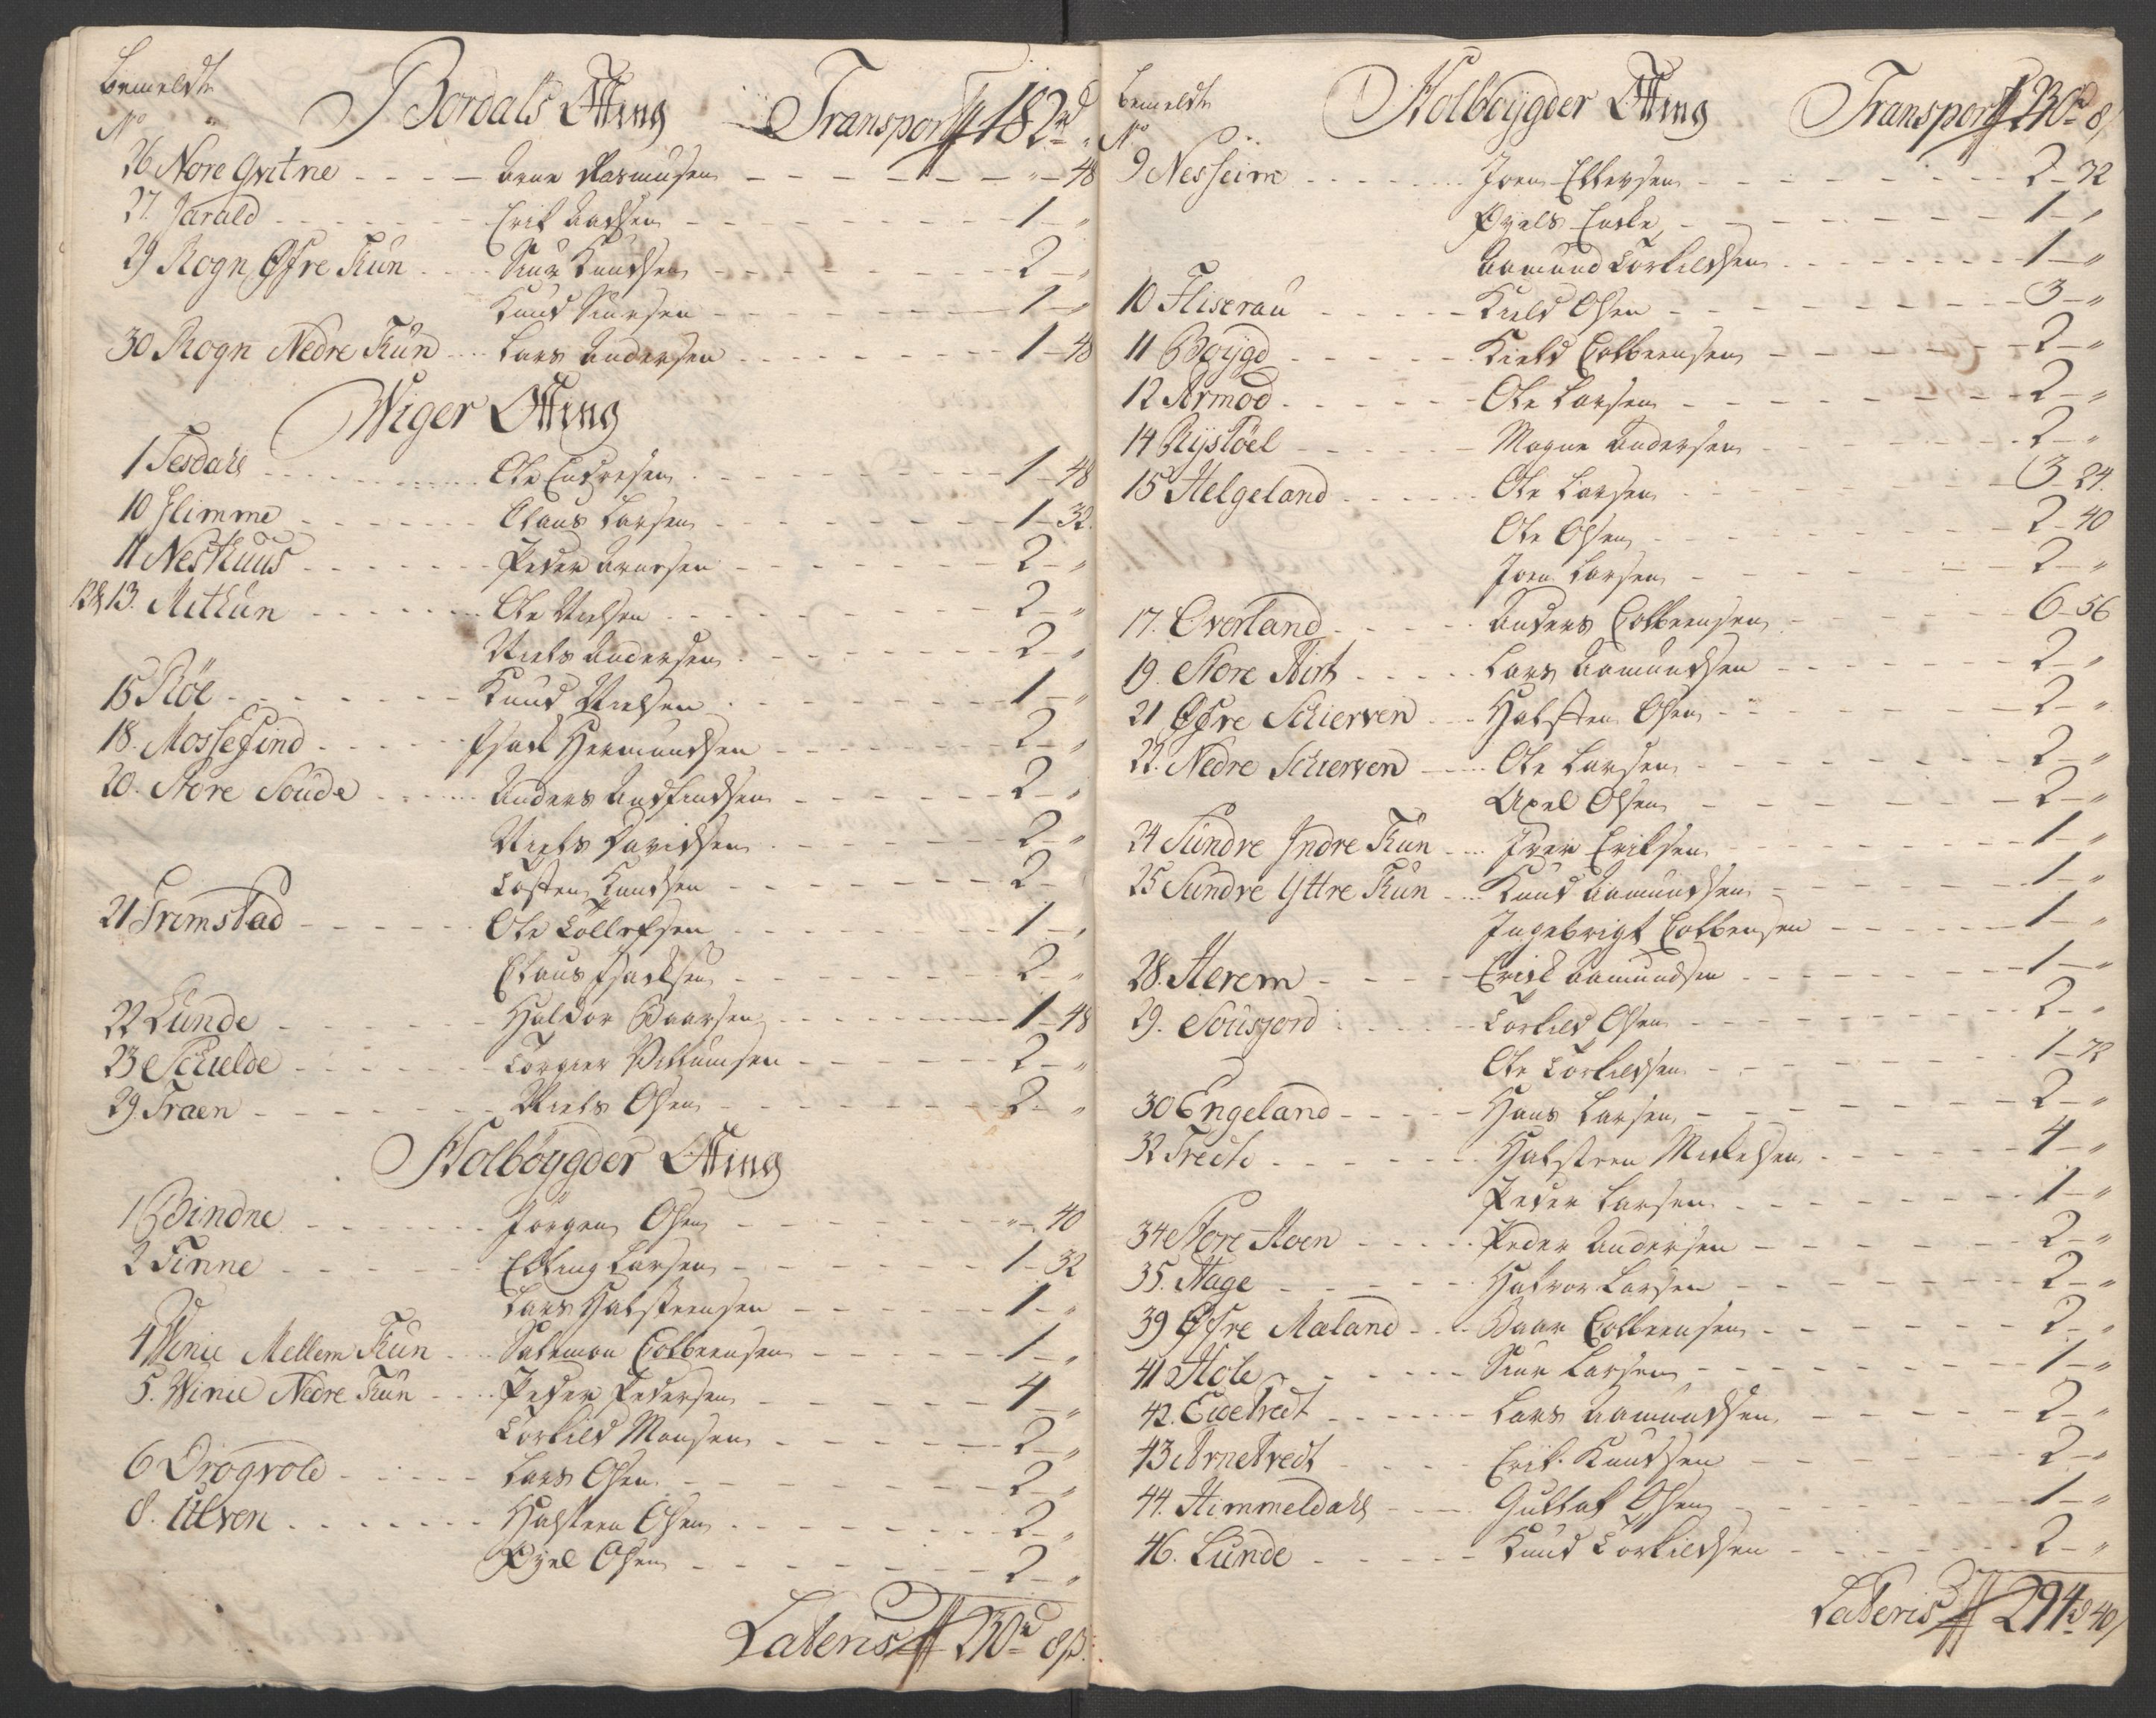 Bemeldte
No „ Bordals Otting Transport 182 rd „
26 Nore Qvitne - - - - Arne Rasmusen - - - „ - 48
27. Jarald - - - Erik Aadsen - - - 1 - „
29 Rogn Øfre Tün - - Siur Knudsen - - - 2 - „
Knud Siursen - - - 1 - „
30 Rogn Nedre Tün - - Lars Andersen - - - 1 - 48
Wiger Otting
1 Tesdahl - - - Ole Endresen - - - 1 - 48
10 Glimme - - - Claus Larsen - - - 1 - 32.
11 Nesthuus - - - Peder Arnesen - - - 2 - „
12 & 13. Mithun - - - Ole Nielsen - - - 2 - „
Niels Andersen - - - 2 - „
15 Röe - - - Knud Nielsen - - - 1 - „
18. Mossefind - - - Isach Hermundsen - - - 2 - „
20. Store Soude - - - Anders Andfindsen - - - 2 - „
Niels Davidsen - - - 2 - „
Tosten Knudsen - - - 2 -
21 Grimstad - - - Ole Tollefsen - - - 1 - „
Claus Isachsen - - - 2 - „
22 Lunde - - - Haldor Baarsen - - - 1 - 48
23 Schielde - - - Torgier Villumsen - - - 2 - „
29. Traen - - - Niels Olsen - - - 2 - „
Holböygder Otting
1 Bindne - - - Jörgen Olsen - - - „ - 40
2 Finne - - - Elling Larsen - - - 1 - 32
Lars Halsteensen - - - 1 - „
4 Winie Mellem Tün - - Salamon Colbeensen - - - 1 - „
5. Winie Nedre Tün - - Peder Pedersen - - - 4 - „
Torkild Monsen - - - 2 - „
6 Drogvold - - - Lars Olsen - - - 2 - „
8. Ulven - - - Halsteen Olsen - - - 2 - „
Axel Olsen - - - 2 - „
Lateris 230 rd 8 ß.
Bemeldte
No Holböygder Otting Transport 230 rd 8
9 Nesheim - - - Joen Ellevsen - - - 2 - 72
Øyels Enke, - - - 1 - „
Aamund Torkildsen - - - 1 - „
10 Fliserau - - - Kield Olsen - - - 3 - „
11 Böygd - - - Kield Colbeensen - - - 2 - „
12 Armod - - - Ole Larsen - - - 2 - „
14 Rystöel - - - Magne Andersen - - - 2 - „
15 Helgeland - - - Ole Larsen - - - 3 - 24.
Ole Olsen - - - 2 - 40
Joen Larsen - - - 2 - „
17. Overland - - - Anders Colbeensen - - - 6 - 56
19. Store Hirt - - - Lars Aamundsen - - - 2 - „
21 Øfre Schierven - - - Halsten Olsen - - - 2 - „
22. Nedre Schierven - - - Ole Larsen - - - 2 - „
Axel Olsen - - - 2 - „
24 Sundre Indre Tün - - Iver Eriksen - - - 1 - „
25 Sundre Yttre Tün - - Knud Aamundsen - - - 1 - „
Ingebrigt Colbensen - - - 1 - „
28. Herem - - - Erick Aamundsen - - - 1 - „
29. Sousjord - - - Torkild Olsen - - - 2 - „
Ole Torkildsen - - - 1 - 72
30 Engeland - - - Hans Larsen, - - - 2 - „
32 Tredte - - - Halsteen Mickelsen - - - 4 - „
Peder Larsen - - - 1 - „
34 Store Hoen - - - Peder Andersen - - - 2 - „
35. Hage - - - Halvor Larsen - - - 2 - „
39 Øfre Mæland - - - Baar Colbeensen - - - 2 - „
41 Hole - - - Siur Larsen - - - 1 - „
42. Eidetvedt - - - Lars Aamundsen - - - 2 - „
43 Arnetvedt - - - Erik Knudsen - - - 2 - „
44. Himmeldahl - - - Gullak Olsen - - - 1 - „
46. Lunde - - - Knud Torkildsen - - - 2 - „
Lateris 294 rd 40